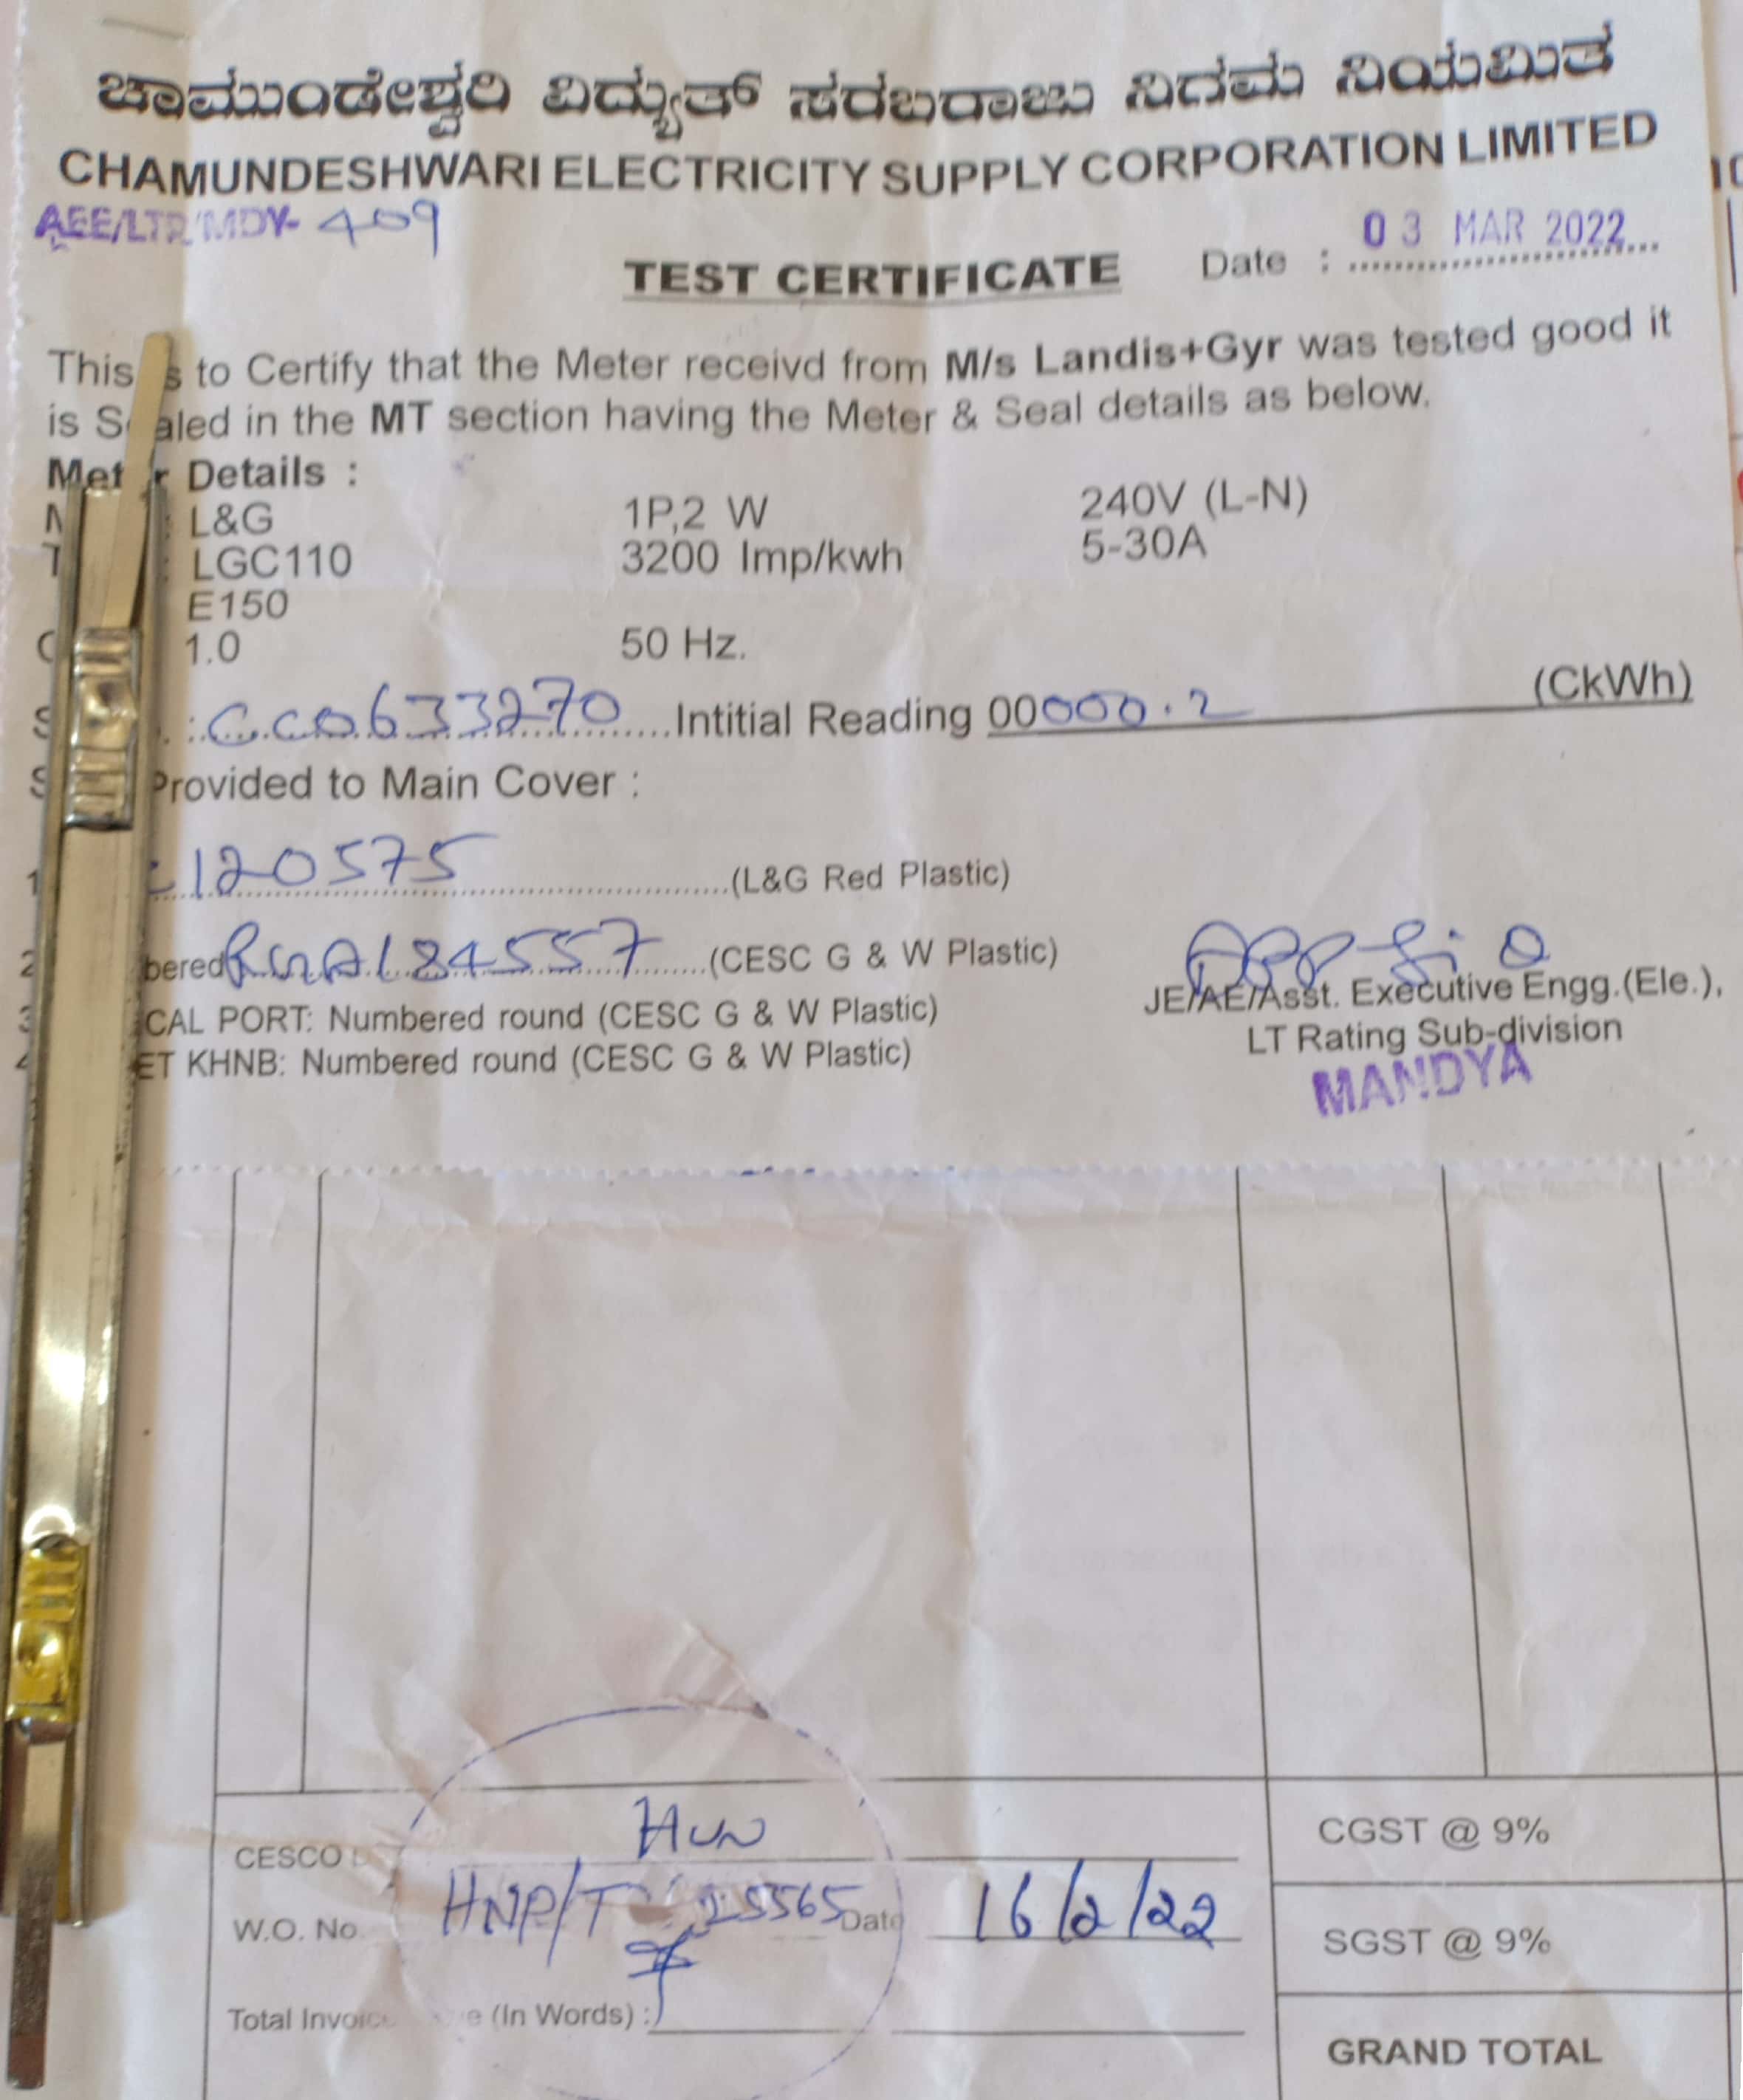 ಚಾಮುಂಡೇಶ್ವರಿ ವಿದ್ಯುತ್ ಸರಬರಾಜು ನಿಗಮ ನಿಯಮಿತ
CHAMUNDESHWARI ELECTRICITY SUPPLY CORPORATION LIMITED
AEE/LTR/MDY- 409
Date : 03 MAR 2022
TEST CERTIFICATE
This is to Certify that the Meter receivd from M/s Landis+Gyr was tested good it
is Sealed in the MT section having the Meter & Seal details as below.
Meter Details :
L&G 1P,2 W 240V (L-N)
LGC110 3200 Imp/kwh 5-30A
E150
1.0 50 Hz.
: CC0633270 Intitial Reading 00000.2 (CkWh)
Provided to Main Cover :
120575 (L&G Red Plastic)
bered 184557 (CESC G & W Plastic)
CAL PORT: Numbered round (CESC G & W Plastic)
ET KHNB: Numbered round (CESC G & W Plastic)
JE/AE/Asst. Executive Engg.(Ele.),
LT Rating Sub-division
MANDYA
CESCO HUN
W.O. No HNP/T 25565 Date 16/2/22
Total Invoice (In Words) :
CGST @ 9%
SGST @ 9%
GRAND TOTAL